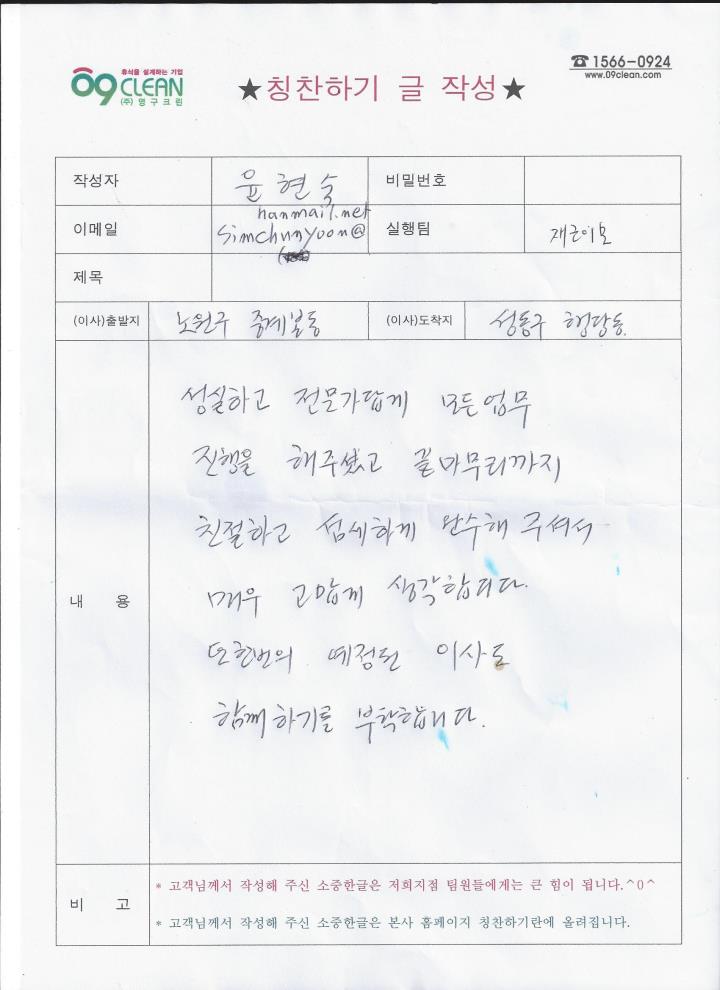 휴식을 설계하는 기업
09 CLEAN
(주) 영구크린
★칭찬하기 글 작성★
☎ 1566-0924
www.09clean.com
작성자 윤현숙 비밀번호
이메일 hanmail.net
simchunyoon@ 실행팀
제목
(이사)출발지 노원구 중계본동 (이사)도착지 성동구 행당동.
성실하고 전문가답게 모든업무
진행을 해주셨고 끝마무리까지
친절하고 섬세하게 완수해 주셔서
매우 고맙게 생각합니다.
또한번의 예정된 이사도
함께하기를 부탁합니다.
내 용
비 고
* 고객님께서 작성해 주신 소중한글은 저희지점 팀원들에게는 큰 힘이 됩니다.^0^
* 고객님께서 작성해 주신 소중한글은 본사 홈페이지 칭찬하기란에 올려집니다.